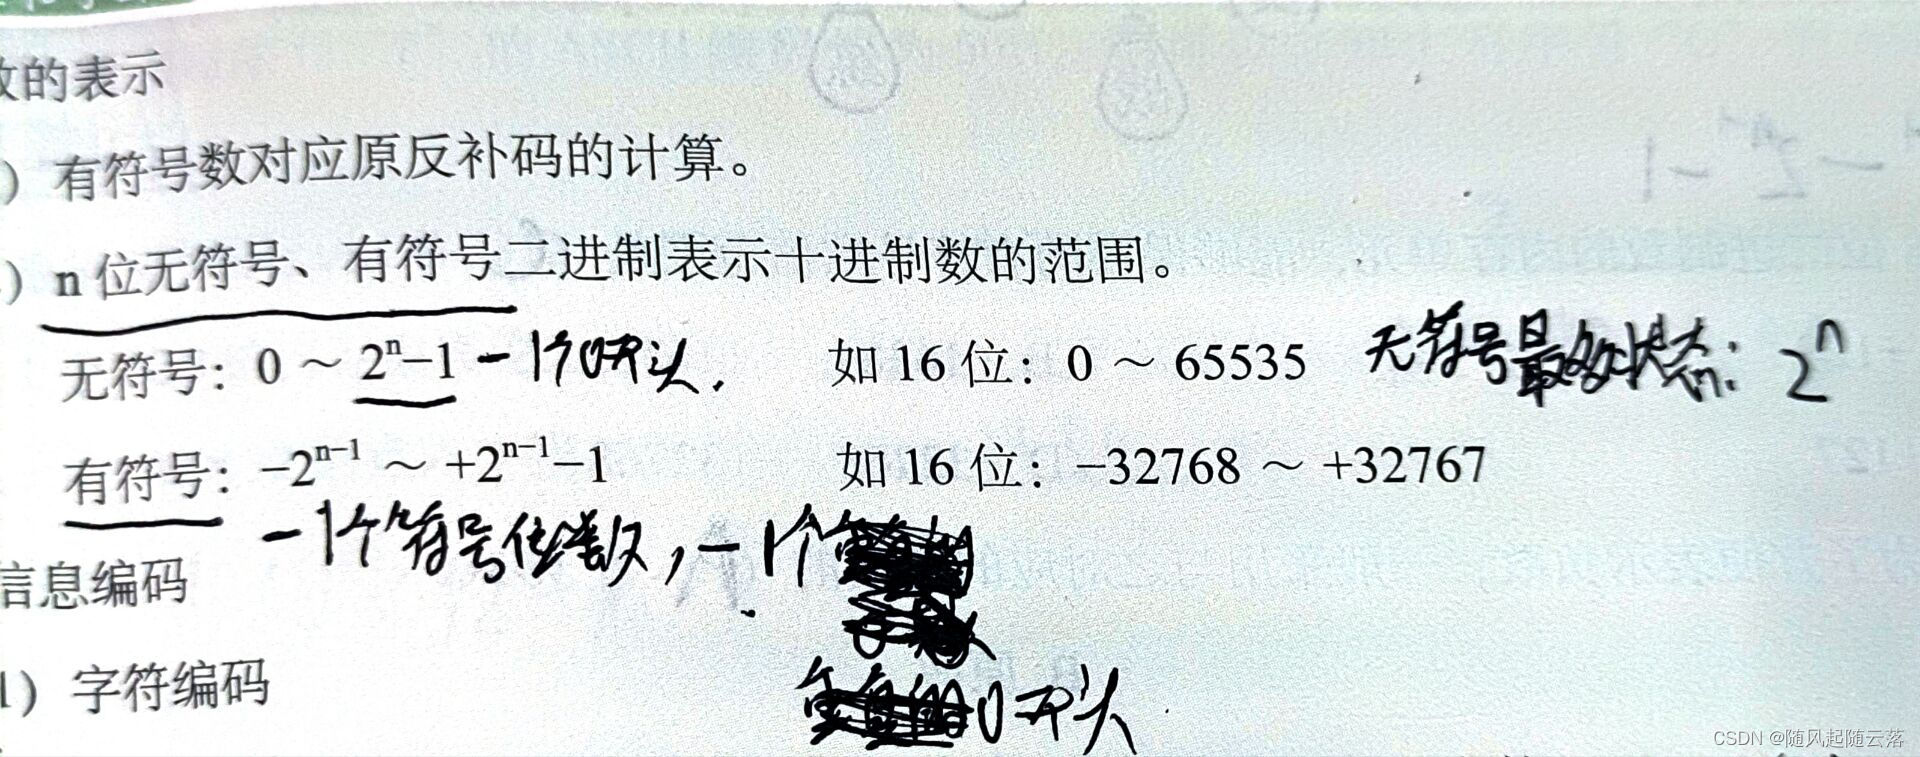 的表示
) 有符号数对应原反补码的计算。
) n 位无符号、有符号二进制表示十进制数的范围。
无符号：0 ～ 2ⁿ−1 -1个0开头. 如 16 位：0 ～ 65535 无符号最多状态: 2ⁿ
有符号：−2ⁿ⁻¹ ～ +2ⁿ⁻¹−1 如 16 位：−32768 ～ +32767
-1个符号位数, -1个
信息编码
0开头
1）字符编码
CSDN @随风起随云落